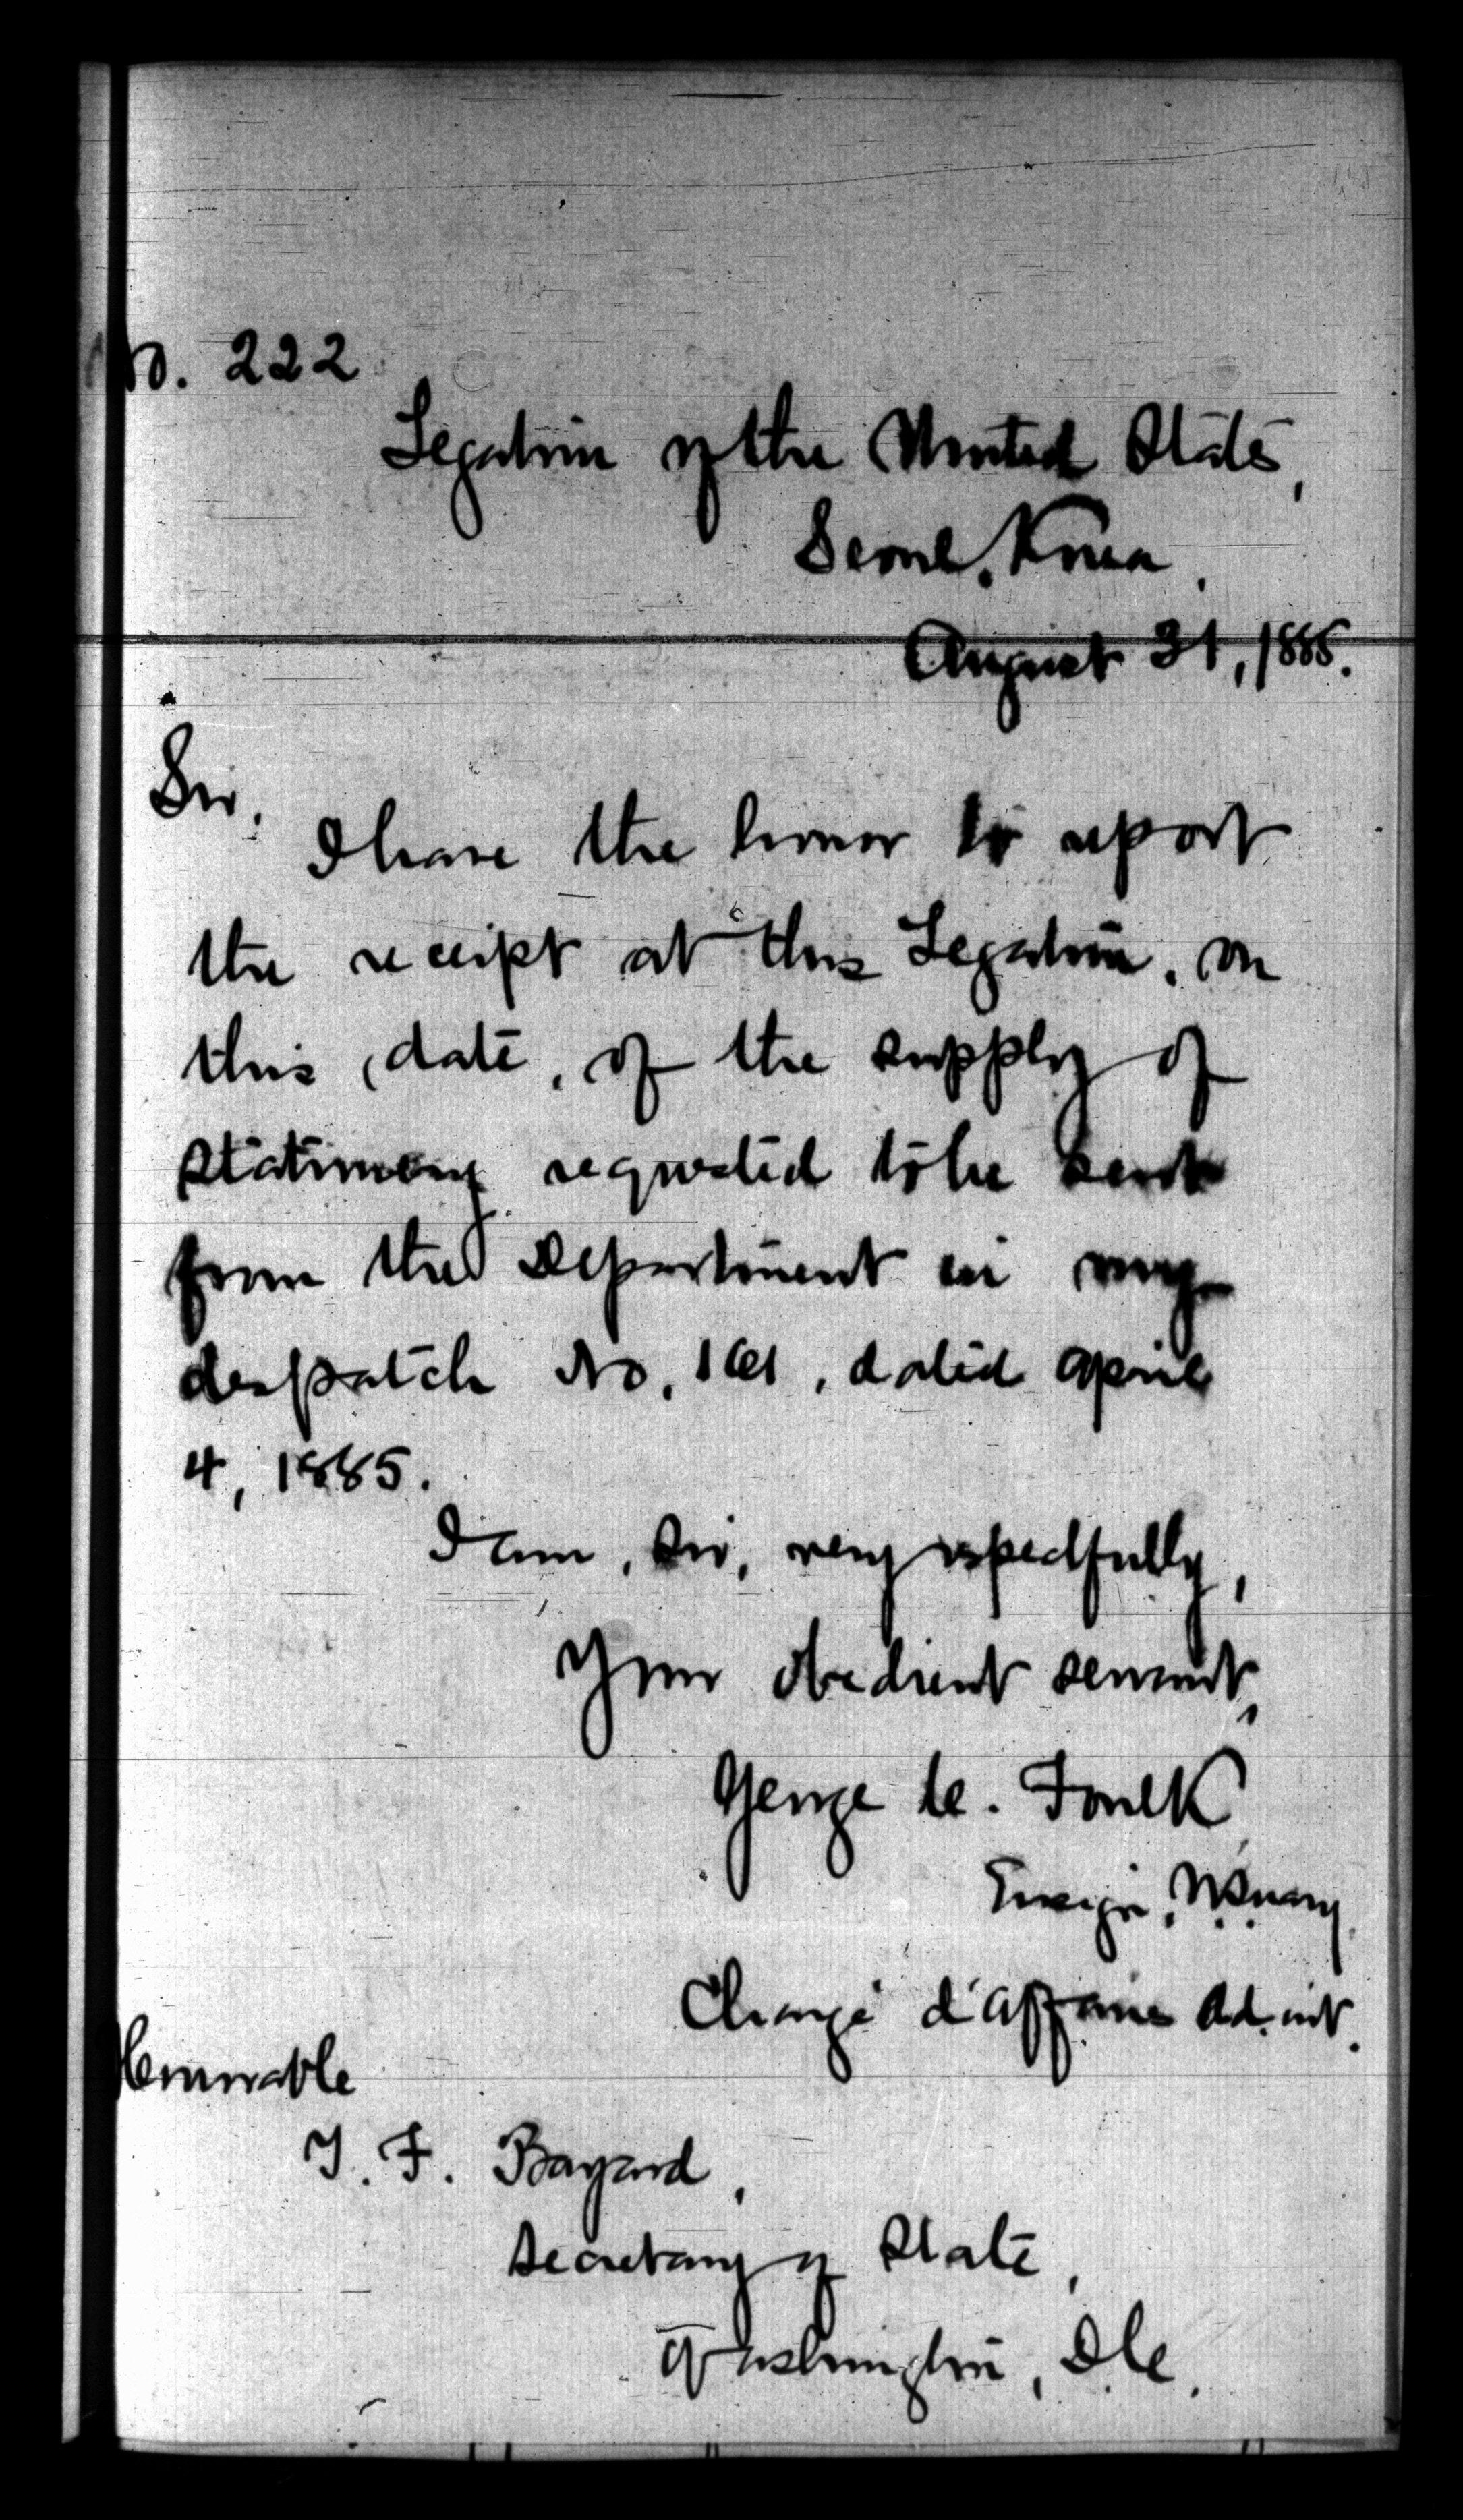 No. 222
Legation of the United States,
Seoul, Korea.
August 31, 1885.
Sir,
I have the honor to report
the receipt at this Legation, on
this date, of the supply of
stationery requested to be sent
from the Department in my
despatch No. 161, dated April
4, 1885.
I am, Sir, very respectfully,
Your obedient servant,
George C. Foulk
Ensign, U.S. Navy
Chargé d'Affaires ad. int.
Honorable
T. F. Bayard,
Secretary of State,
Washington, D.C.